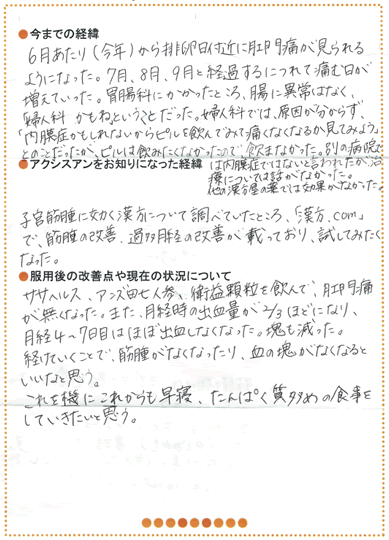 ●今までの経緯
6月あたり(今年)から排卵日付近に肛門痛が見られる
ようになった。7月、8月、9月と経過するにつれて痛む日が
増えていった。胃腸科にかかったところ、腸に異常はなく、
「婦人科かもね」ということだった。婦人科では、原因が分からず、
「内膜症かもしれないからピルを飲んでみて痛くなくなるか見てみよう」
とのことだったが、ピルは飲みたくなかったので、飲まなかった。別の病院で
は内膜症ではないと言われたが治
療については話がなかった。
他の漢方屋の薬では効果がなかった。
●アクシスアンをお知りになった経緯
子宮筋腫に効く漢方について調べていたところ、「漢方.com」
で、筋腫の改善、過多月経の改善が載っており、試してみたく
なった。
●服用後の改善点や現在の状況について
ササヘルス、アンズ田七人参、衛益顆粒を飲んで、肛門痛
が無くなった。また、月経時の出血量が2/3ほどになり、
月経4〜7日目はほぼ出血しなくなった。塊も減った。
続けていくことで、筋腫がなくなったり、血の塊がなくなると
いいなと思う。
これを機にこれからも早寝、たんぱく質多めの食事を
していきたいと思う。